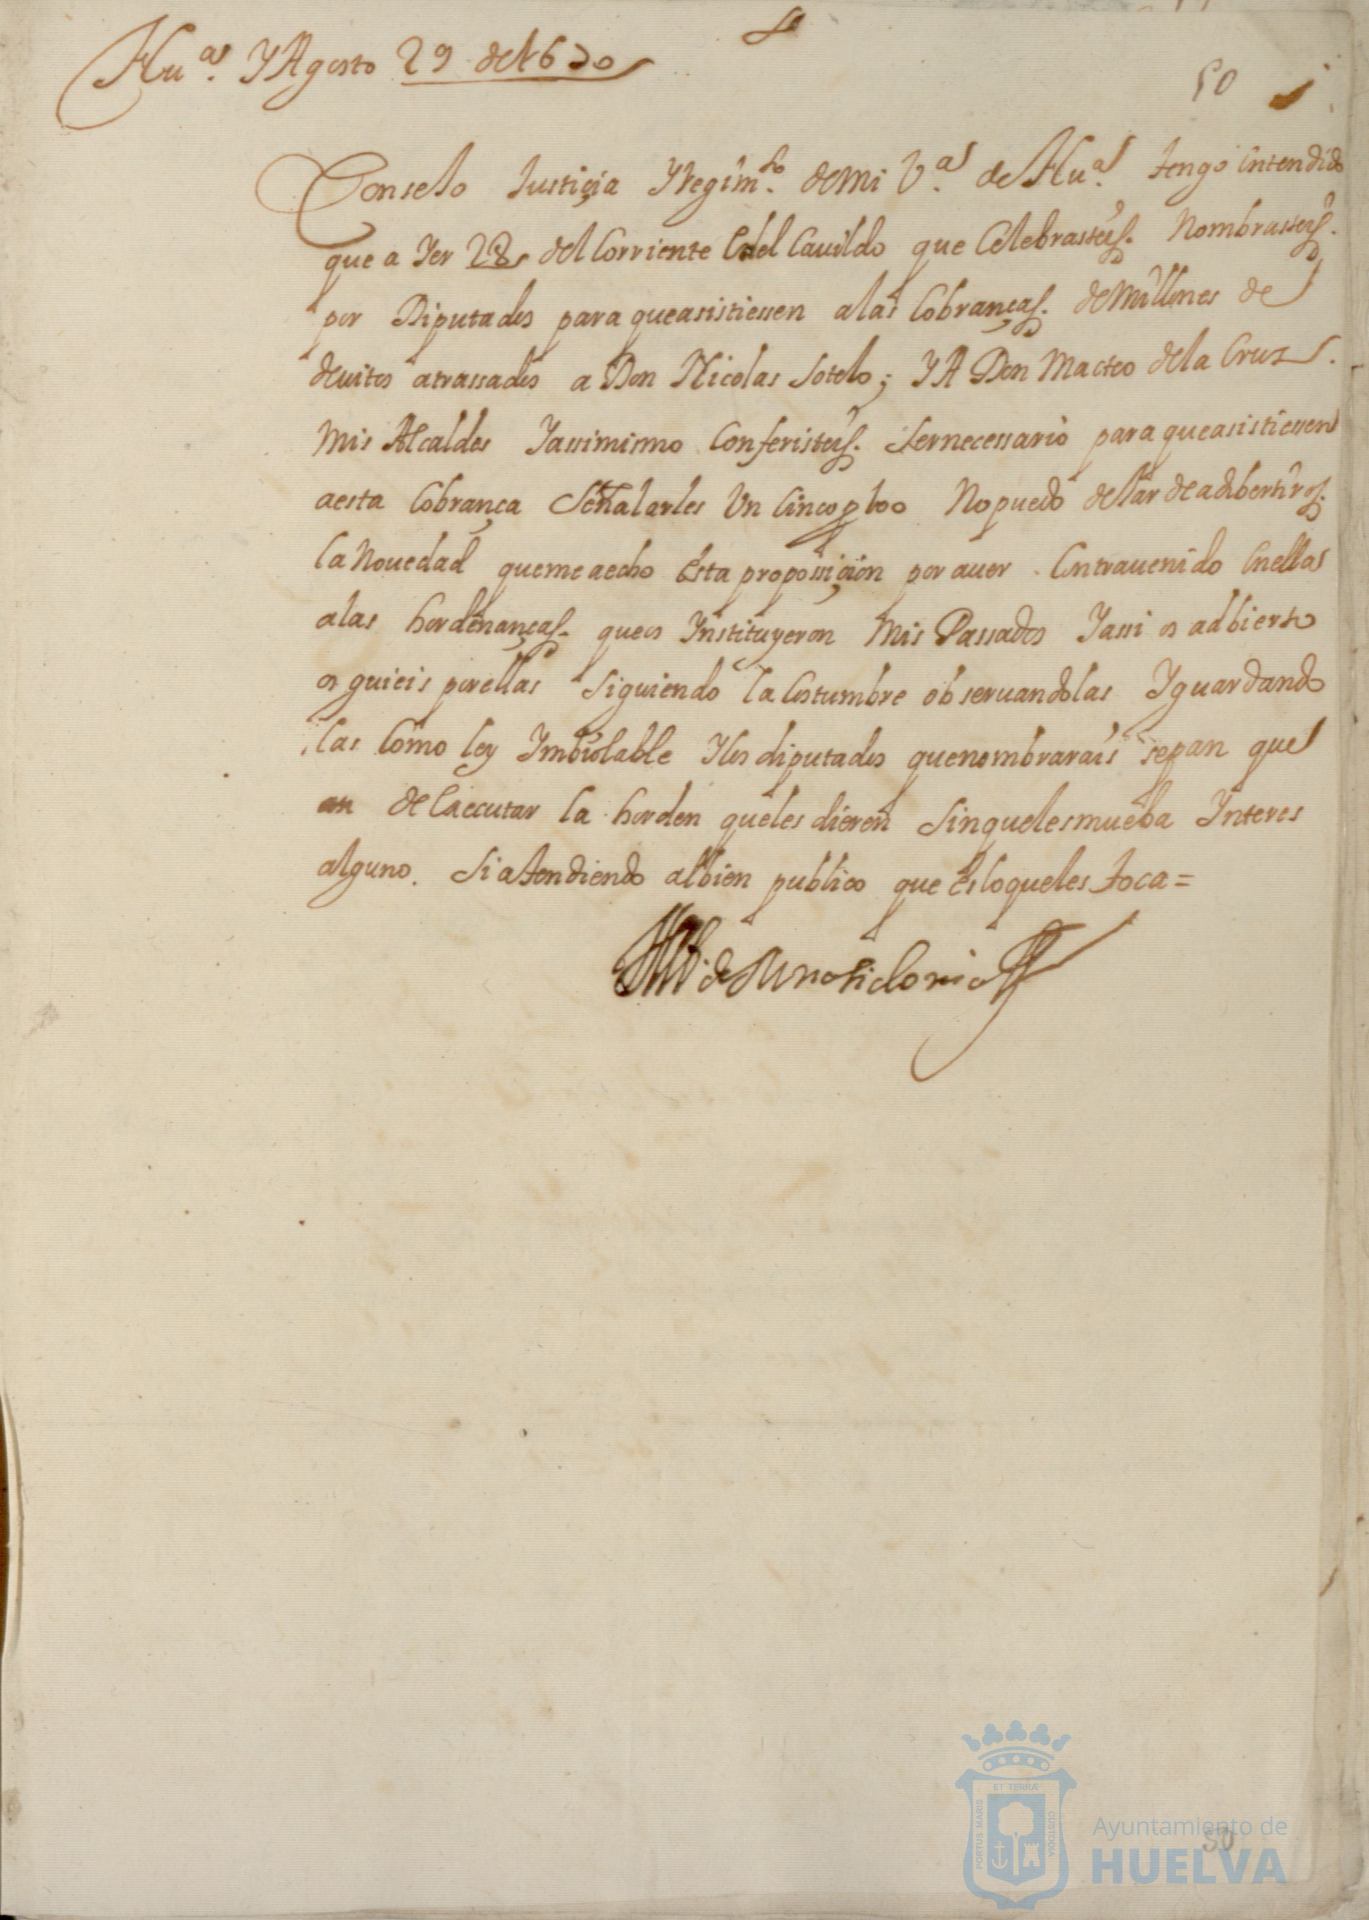 Hu.ª Y Agosto 29 de 1670
50
Consejo Justiçia Y Regim.to de mi V.ª de Hu.ª tengo entendido
que a Yer 28 del Corriente En el Cauildo que Celebrasteis. Nombrasteis.
por Diputados para que asistiessen a las Cobranças. de Millones de
deuitos atrassados a Don Nicolas Sotelo; Y A Don Matteo de la Cruz.
Mis Alcaldes Y assimismo Conferisteis. Ser necessario para que asistiessen
a esta Cobrança Señalarles Un Cinco p 100 No puedo dejar de adbertiros.
la Nouedad que me a echo Esta proposiçion por auer Contrauenido En ellas
a las hordenanças. que os Ynstituyeron Mis Passados Y assi os adbierto
os guieis por ellas Siguiendo la Costumbre obseruandolas Y guardando
las Como ley Ymbiolable Y los diputados que nombrarais sepan que
an de Executar la horden que les dieren Sin que les mueba Ynteres
alguno. Si atendiendo al bien publico que Es lo que les toca =
de Medina Sidonia
50
ET TERRÆ
PORTUS MARIS
CUSTODIA
Ayuntamiento de
HUELVA